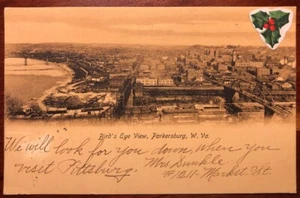 Bird's Eye View, Parkersburg, W. Va.
We will look for you down, when you
visit Pittsburg. Mrs Dunkle
1011 - Market St.